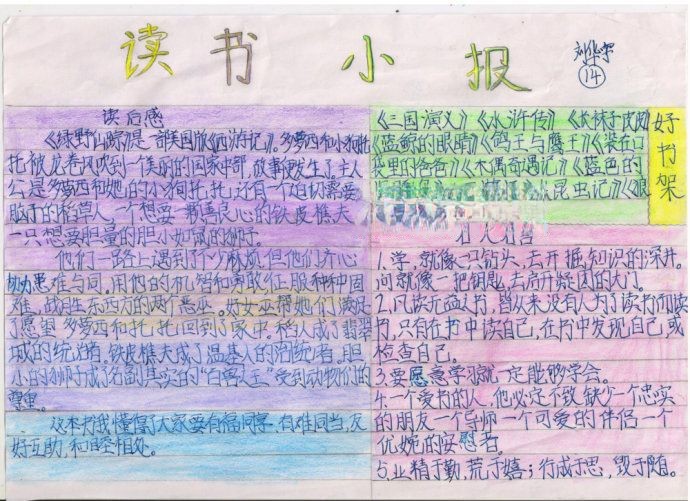 读书小报
刘华宇
14
读后感
《绿野仙踪》是一部美国版《西游记》。多萝西和小狗托
托被龙卷风吹到一个美丽的国家中部，故事便发生了。主人
公是多萝西和她的小狗托托，还有一个迫切需要
脑子的稻草人，一个想要一颗善良心的铁皮樵夫
一只想要胆量的胆小如鼠的狮子。
他们一路上遇到了不少麻烦但他们齐心
协力患难与同。用他的机智和勇敢征服种种困
难，战胜东西方的两个恶巫。好女巫帮她们满足
了愿望。多萝西和托托回到了家中。稻人成了翡翠
城的统治者，铁皮樵夫成了温基人的治统者，胆
小的狮子成了名副其实的“百兽之王”受到动物们的
尊重。
这本书我懂得了大家要有福同享，有难同当，友
好互助，和睦相处。
《三国演义》《水浒传》《长袜子皮皮》
《蓝鲸的眼睛》《鸽王与鹰王》《装在口
袋里的爸爸》《木偶奇遇记》《蓝色的
昆虫记》《狼
好书架
名人名言
1.学，就像一只钻头，去开掘知识的深井。
问就像一把钥匙，去启开疑团的大门。
2.凡读无益之书，皆从来没有人为了读书而读
书，只有在书中读自己，在书中发现自己，或
检查自己。
3.要愿意学习就一定能够学会。
4.一个爱书的人，他必定不致缺少一个忠实
的朋友一个导师一个可爱的伴侣一个
优婉的安慰者。
5.业精于勤，荒于嬉；行成于思，毁于随。